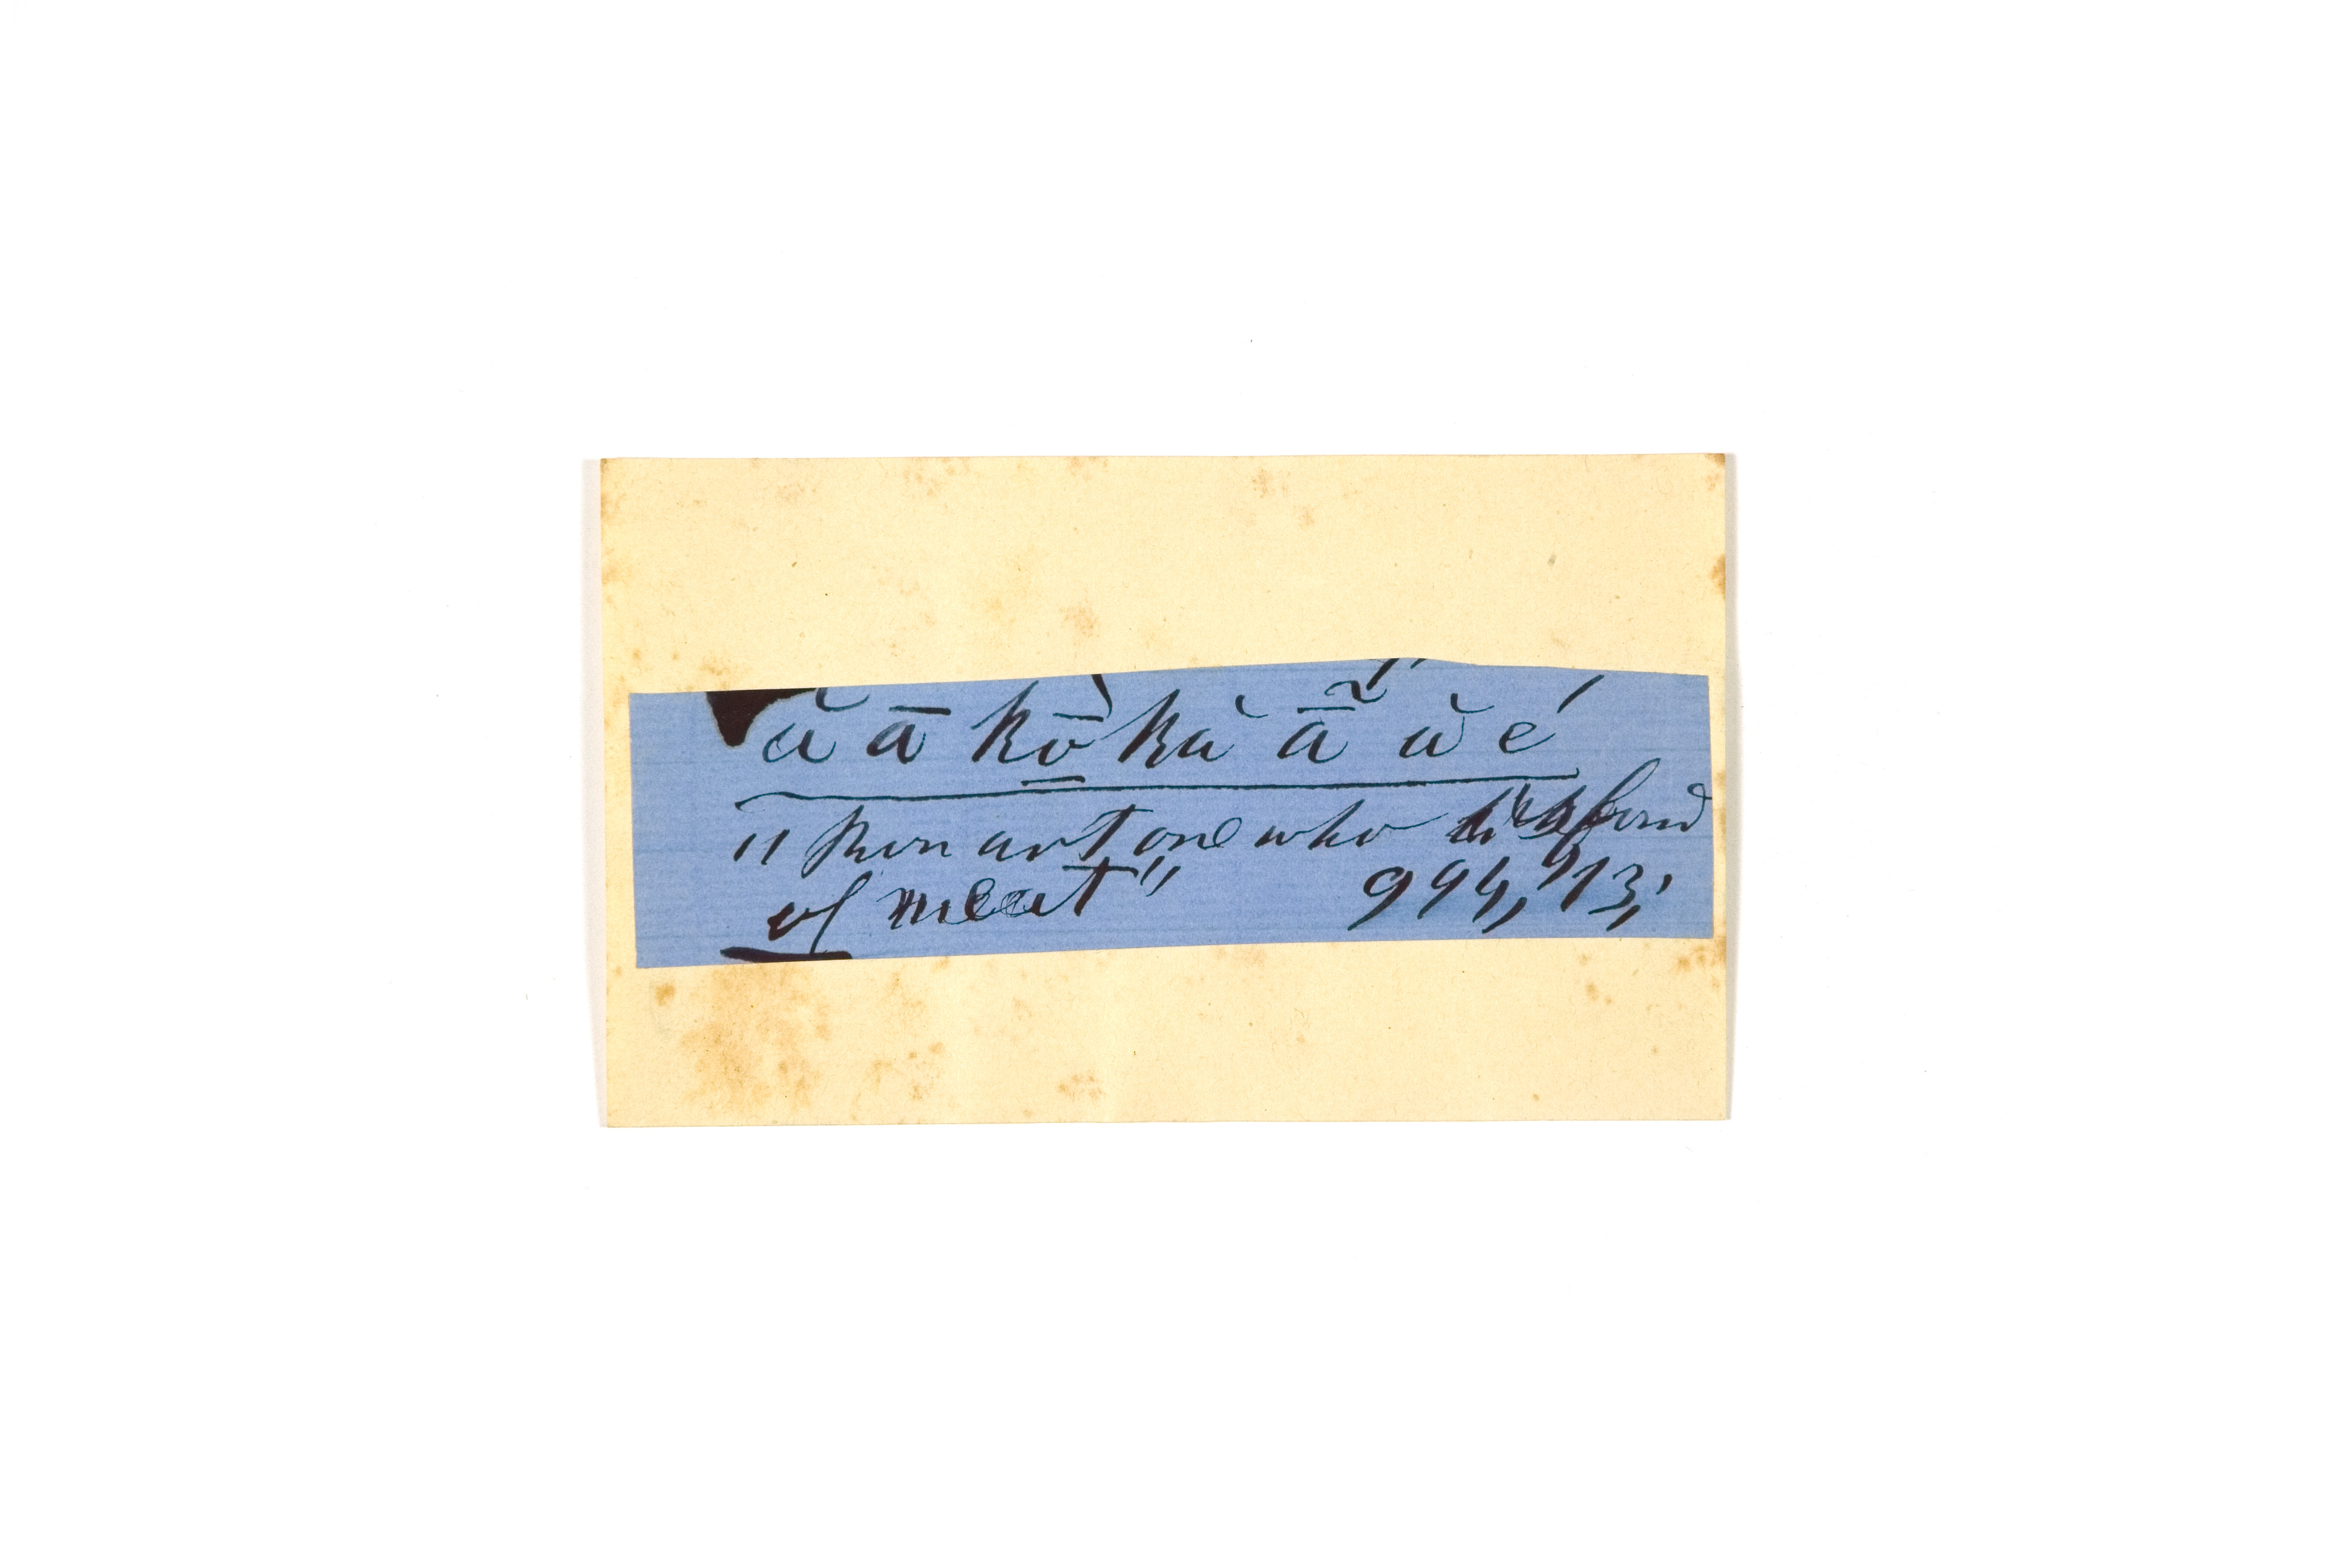 ă ā kō̱ kă ā ă é
"thou art one who is fond
of meat" 994,913,